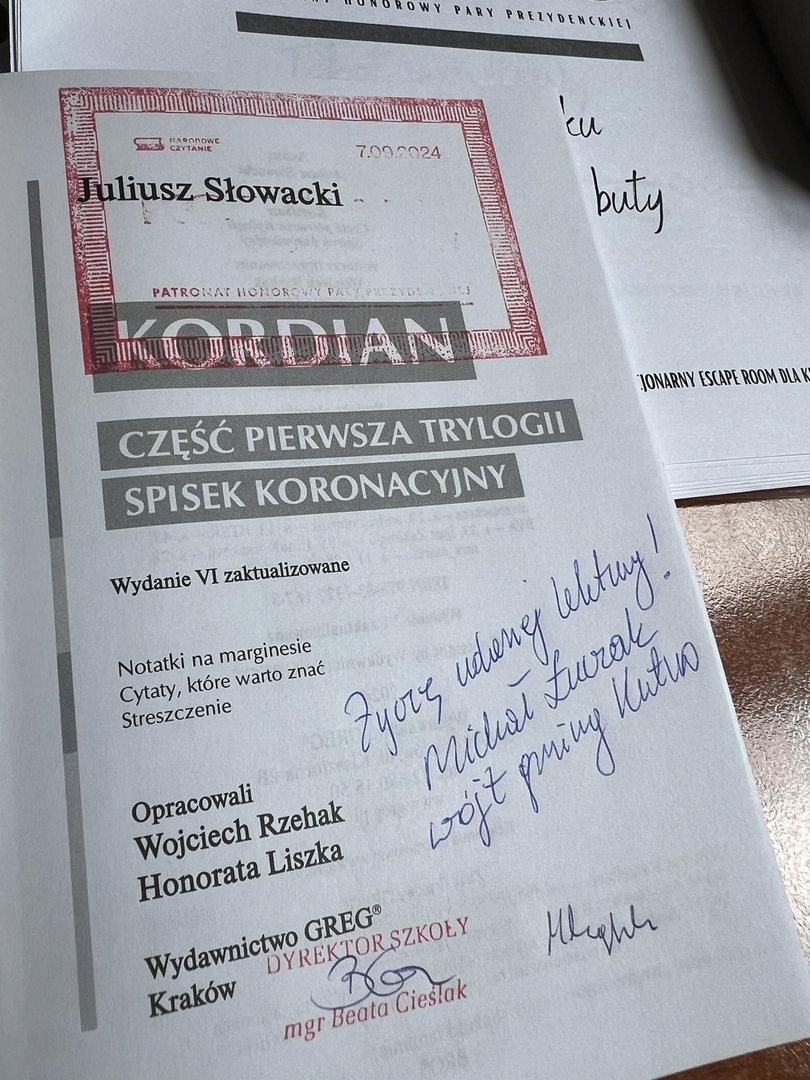 NY HONOROWY PARY PREZYDENCKIEJ
ku
buty
JONARNY ESCAPE ROOM DLA K
NARODOWE
CZYTANIE
7.09.2024
Juliusz Słowacki
PATRONAT HONOROWY PARY PREZYDENCKIEJ
KORDIAN
CZĘŚĆ PIERWSZA TRYLOGII
SPISEK KORONACYJNY
Wydanie VI zaktualizowane
Notatki na marginesie
Cytaty, które warto znać
Streszczenie
Życzę udanej lektury!
Michał Łuczak
wójt gminy Kutno
Opracowali
Wojciech Rzehak
Honorata Liszka
Wydawnictwo GREG®
Kraków
DYREKTOR SZKOŁY
mgr Beata Cieślak